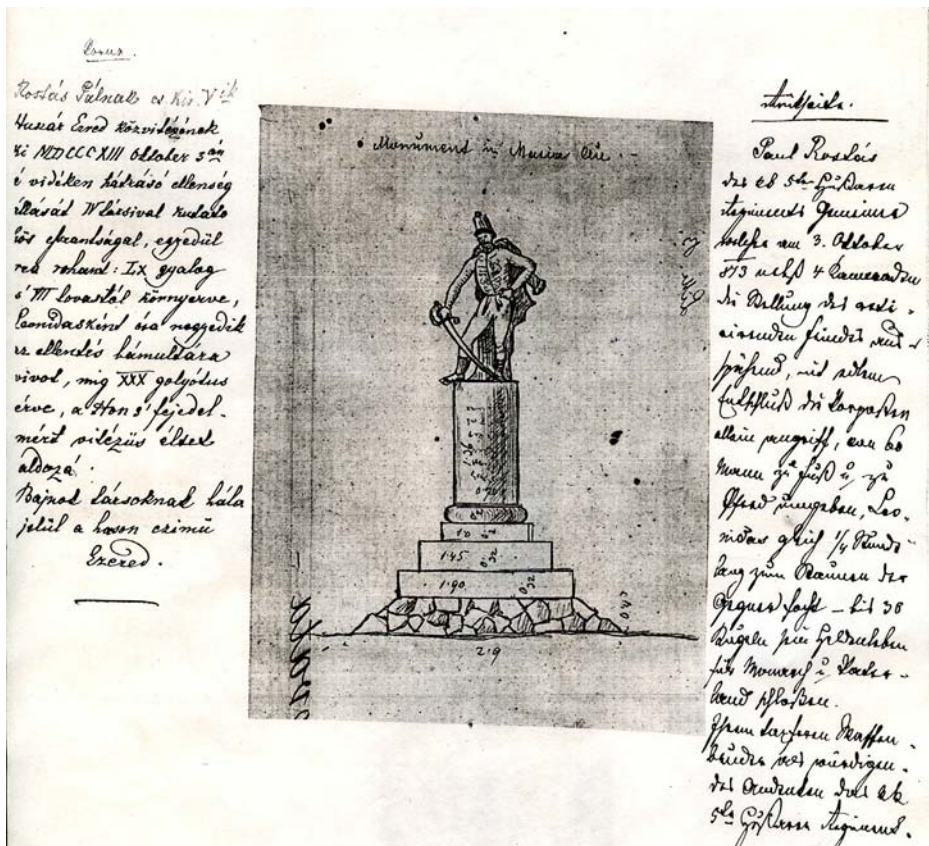 Rostás Pálnak cs. Kir. V ik
Huszár Ezred közvitézének
ki MDCCCXIII Oktober 3 án
é vidéken hátráló ellenség
állását IV társival kutató
hös elszantságal, egyedül
reá rohant: LX gyalog
s' VII lovastól környerve,
Leonidasként óra negyedik
az ellentés bámultára
vivot, mig XXX golyótus
érve, a Hon s' fejedel-
mért vitézüs éltet
aldozá.
Bajnot társoknat hála
jelül a hason czimü
Ezered.
Monument in Maria Aue
1.45
0.32
1.90
0.32
0.40
2.9
Paul Rostás
des kk 5ten Hußaren
Regiments Gemeiner
welcher am 3. Oktober
813 nebst 4 Kameraden
die Stellung des reti-
rirenden Feindes aus-
spähend, mit edlem
Entschluß die Vorposten
allein angriff, von 60
Mann zu Fuß u. zu
Pferd umgeben, Leo-
nidas gleich 1/4 Stunde
lang zum Staunen der
Gegner focht – bis 30
Kugeln sein Heldenleben
für Monarch u. Vater-
land schloßen.
Ihrem tapferen Waffen-
bruder
des kk
5ten Hußaren Regiment.